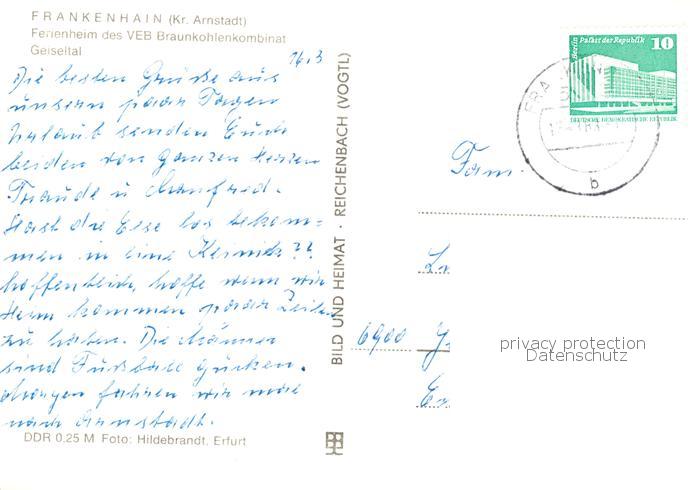 FRANKENHAIN (Kr. Arnstadt)
Ferienheim des VEB Braunkohlenkombinat
Geiseltal
16.3
Die besten Grüße aus
unsern paar Tagen
Urlaub senden Euch
beiden von ganzen Herzen
Traude u. Manfred.
Hast die Else los bekom=
men in eine Klinik??
hoffentlich, hoffe wenn wir
Heim kommen paar Zeilen
zu haben. Die Männer
sind Fußball gucken.
Morgen fahren wir mal
nach Arnstadt.
DDR 0,25 M Foto: Hildebrandt, Erfurt
BILD UND HEIMAT · REICHENBACH (VOGTL)
Berlin Palast der Republik 10
DEUTSCHE DEMOKRATISCHE REPUBLIK
FRANKEN
b
Fam.
6900
privacy protection
Datenschutz